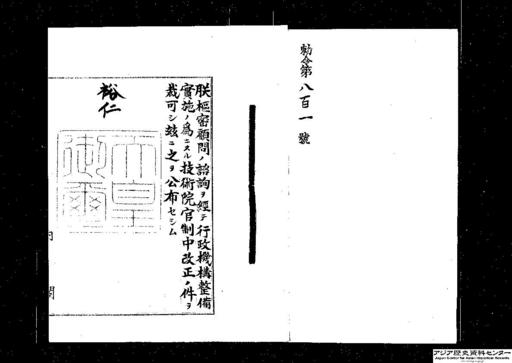 勅令第八百一號
朕樞密顧問ノ諮詢ヲ經テ行政機構整備
實施ノ爲ニスル技術院官制中改正ノ件ヲ
裁可シ茲ニ之ヲ公布セシム
裕仁
天皇
御璽
閣
アジア歴史資料センター
Japan Center for Asian Historical Records